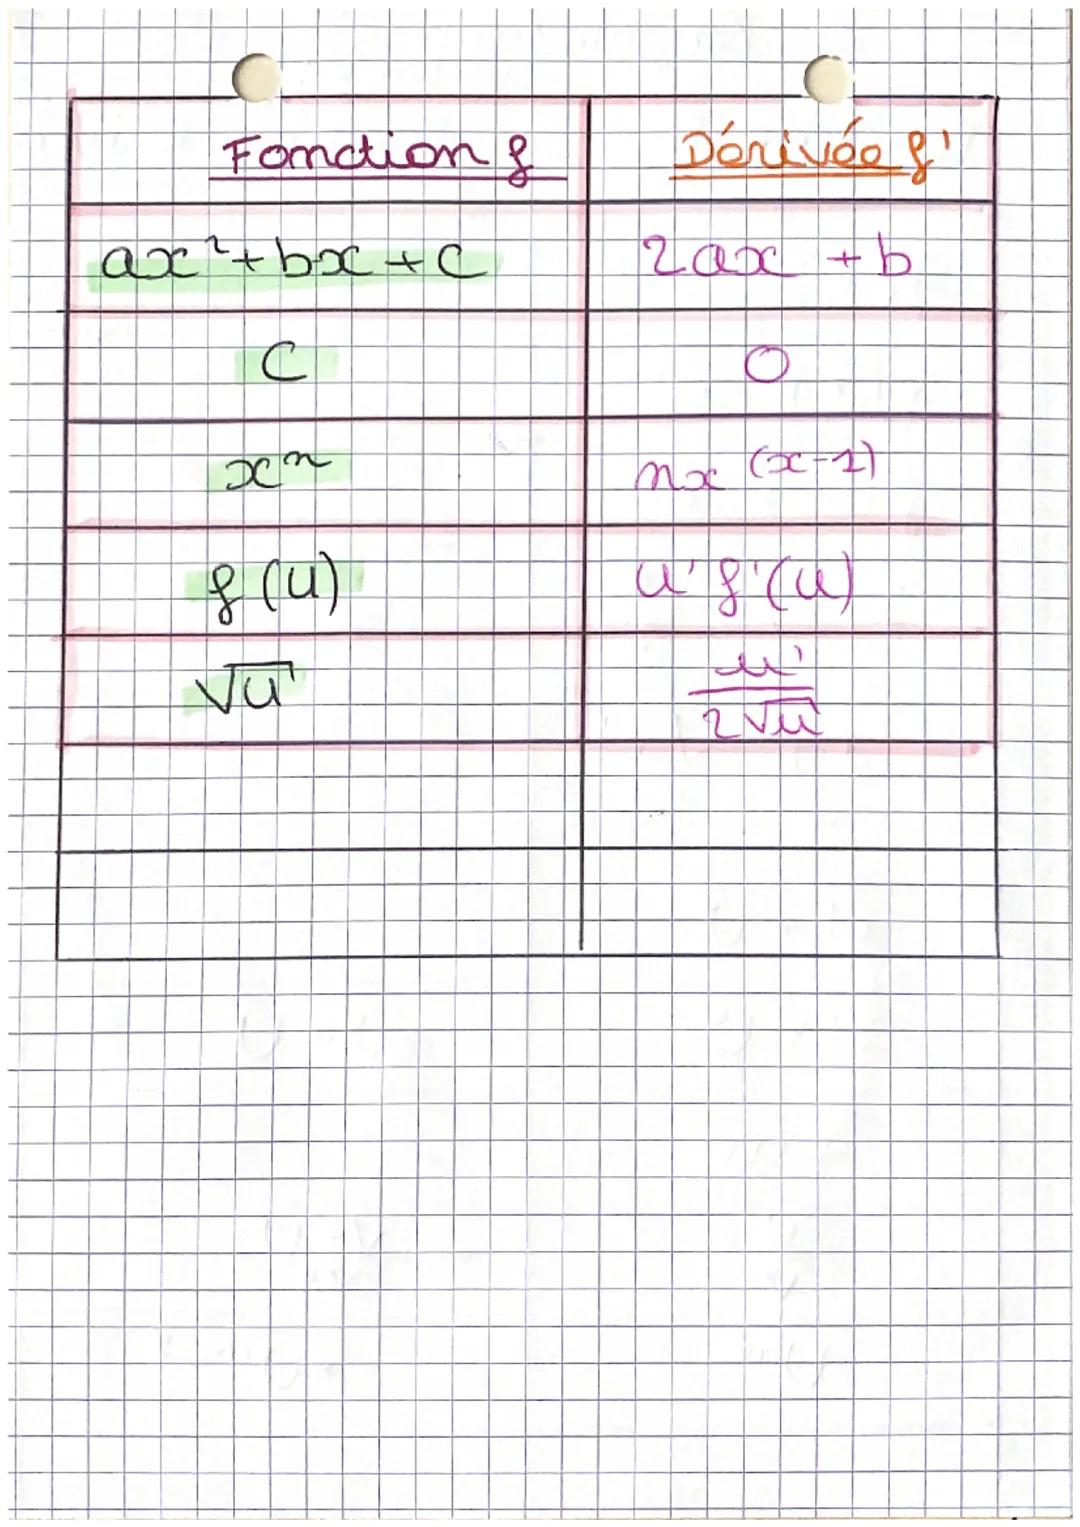 Fonction f Dérivée f'
ax²+bx+c 2ax +b
C 0
xⁿ nx ⁽ˣ⁻¹⁾
f(u) u'f'(u)
√u u'/2√u